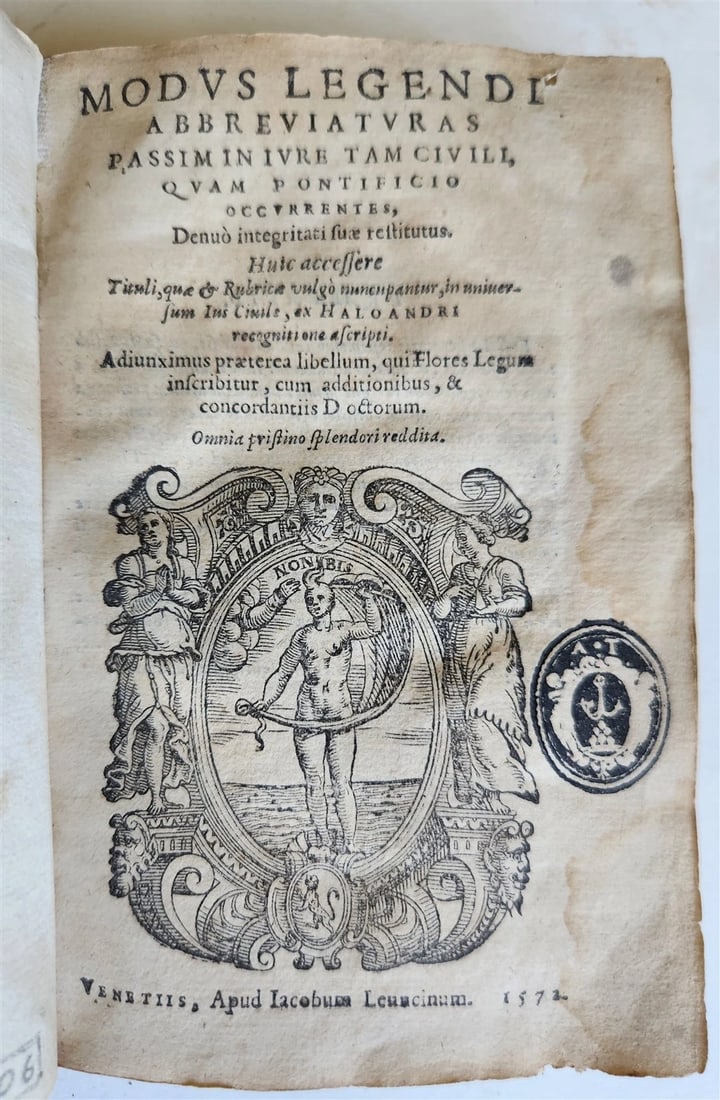 MODVS LEGENDI
ABBREVIATVRAS
PASSIM IN IVRE TAM CIVILI,
QVAM PONTIFICIO
OCCVRRENTES,
Denuò integritati ſuæ reſtitutus.
Huic acceſſere
Tituli, quæ & Rubricæ vulgò nuncupantur, in uniuer-
ſum Ius Ciuile, ex HALOANDRI
recognitione aſcripti.
Adiunximus præterea libellum, qui Flores Legum
inſcribitur, cum additionibus, &
concordantiis Doctorum.
Omnia priſtino ſplendori reddita.
NON IBIS
A·T
VENETIIS, Apud Iacobum Leuncinum. 1572.
06